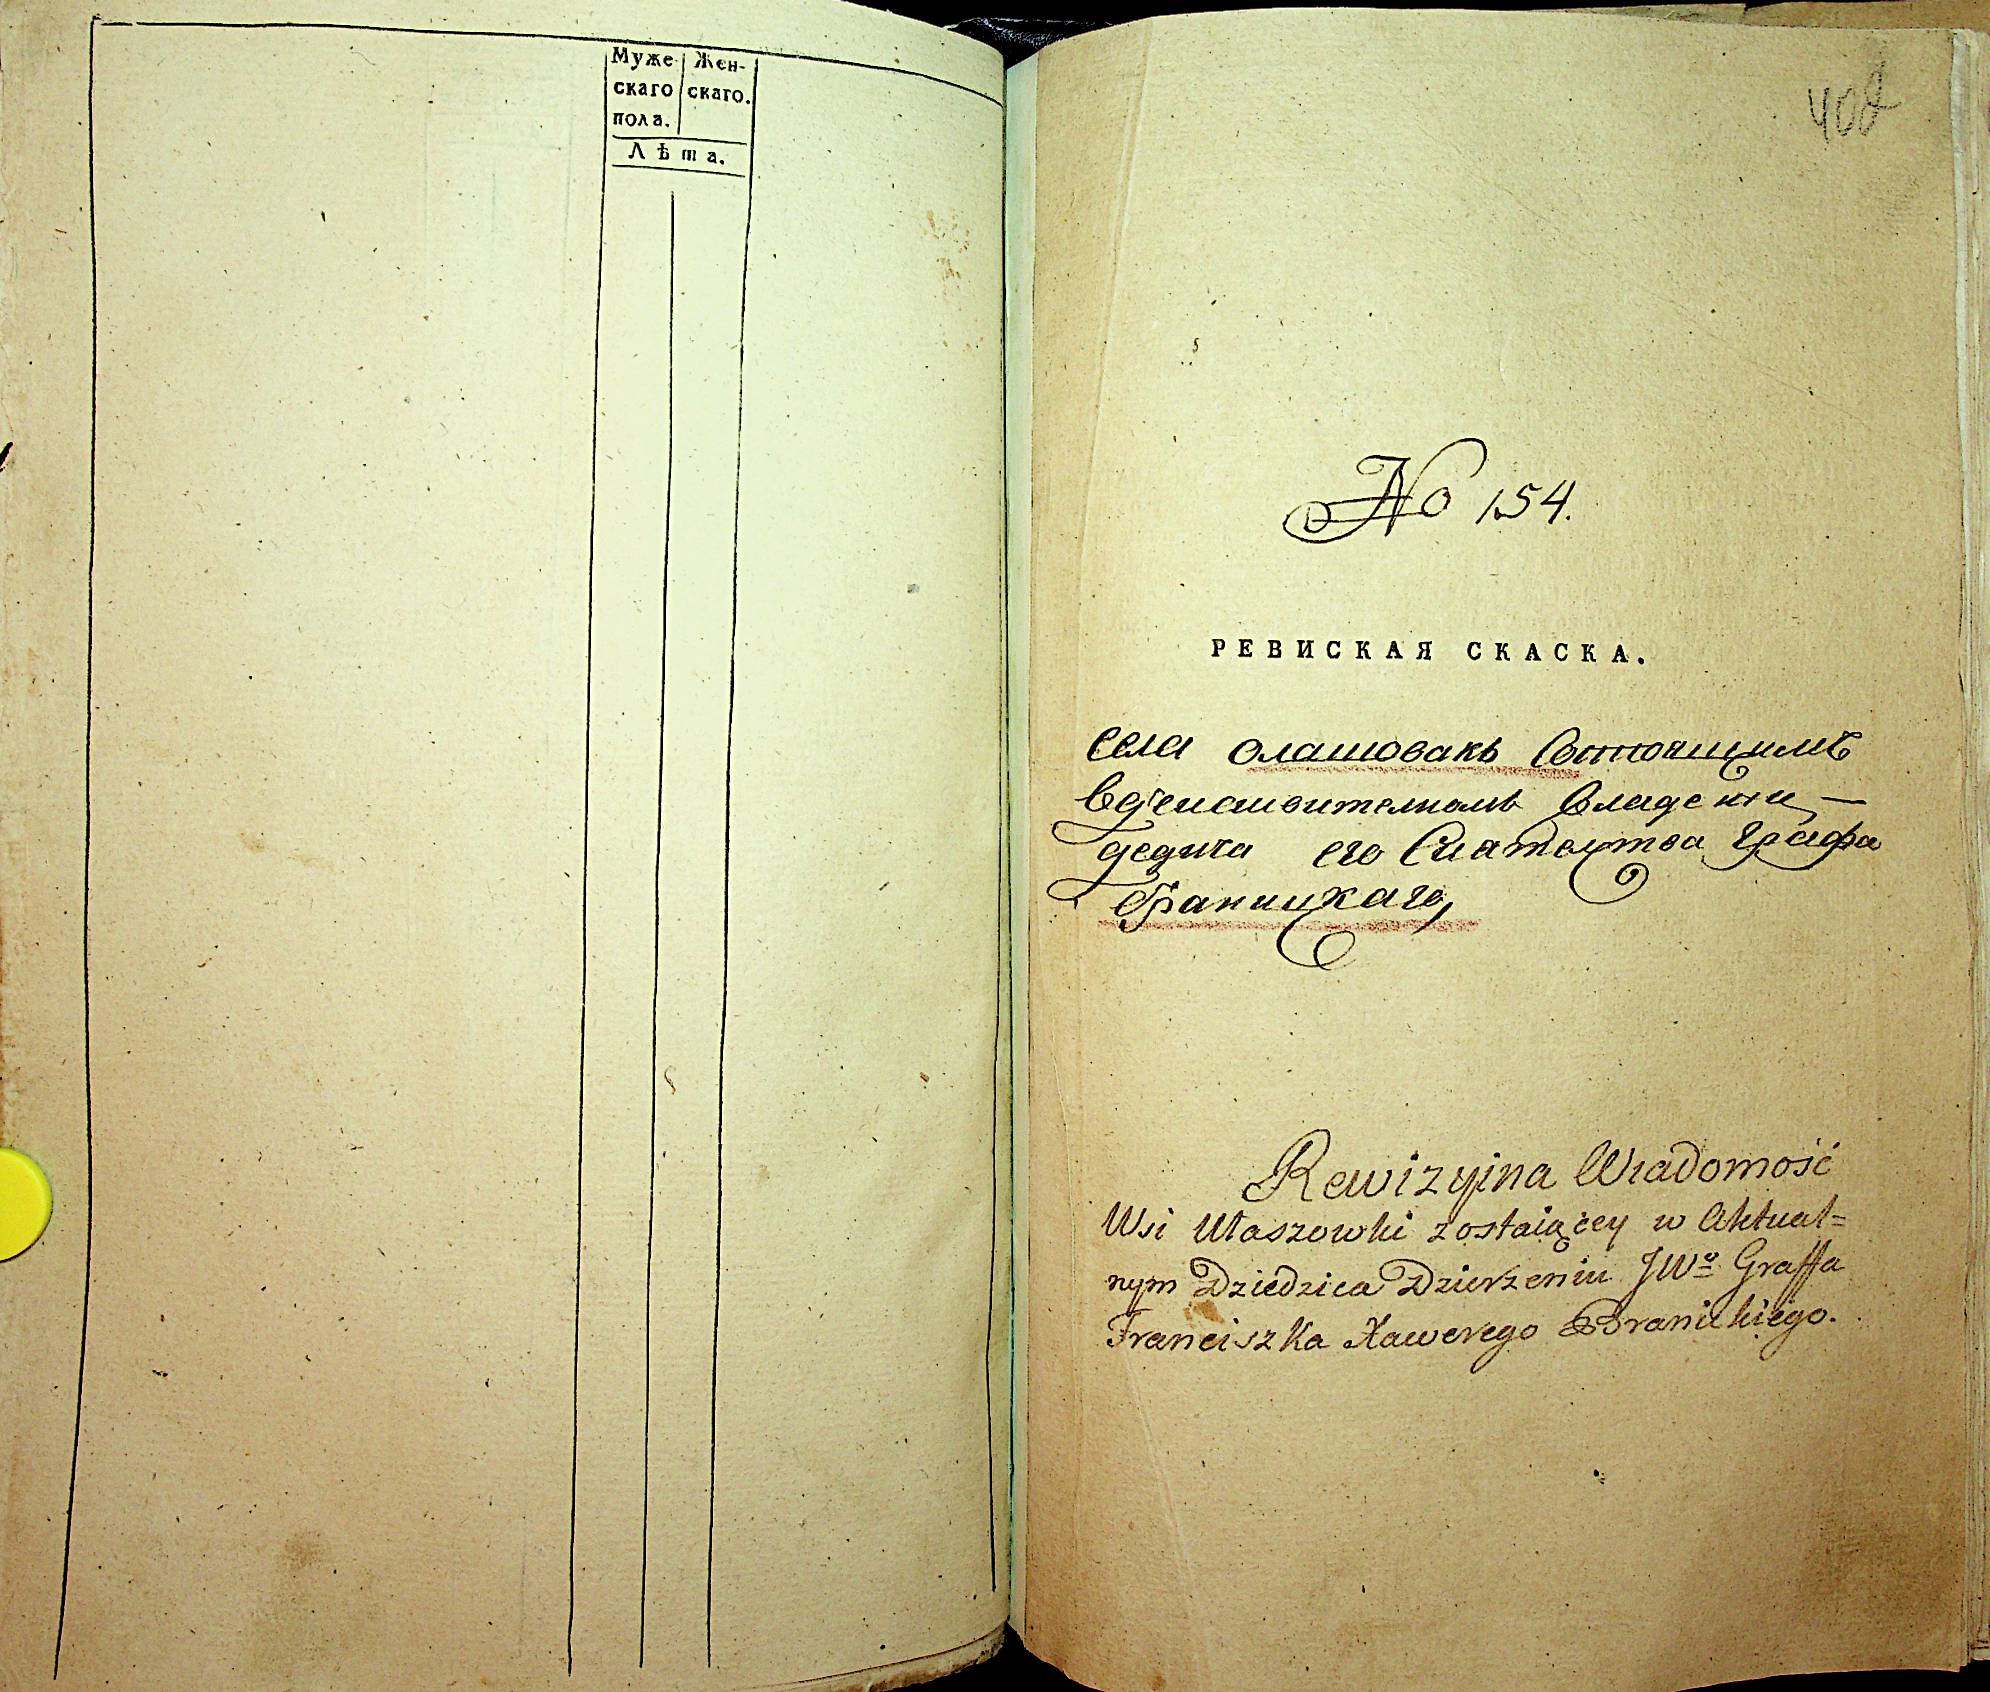 Муже Жен-
скаго скаго.
пола.
Лѣта.
402
No 154.
РЕВИСКАЯ СКАСКА.
села олашовакъ Состоящимъ
вдѣиствителномъ владении —
дедича его Сиателства Графа
Браницкаго
Rewizyjna Wiadomość
Wsi Ułaszowki zostaiącey w Aktual=
nym Dziedzica Dzierzeniu JWo Graffa
Franciszka Xawerego Branickiego.